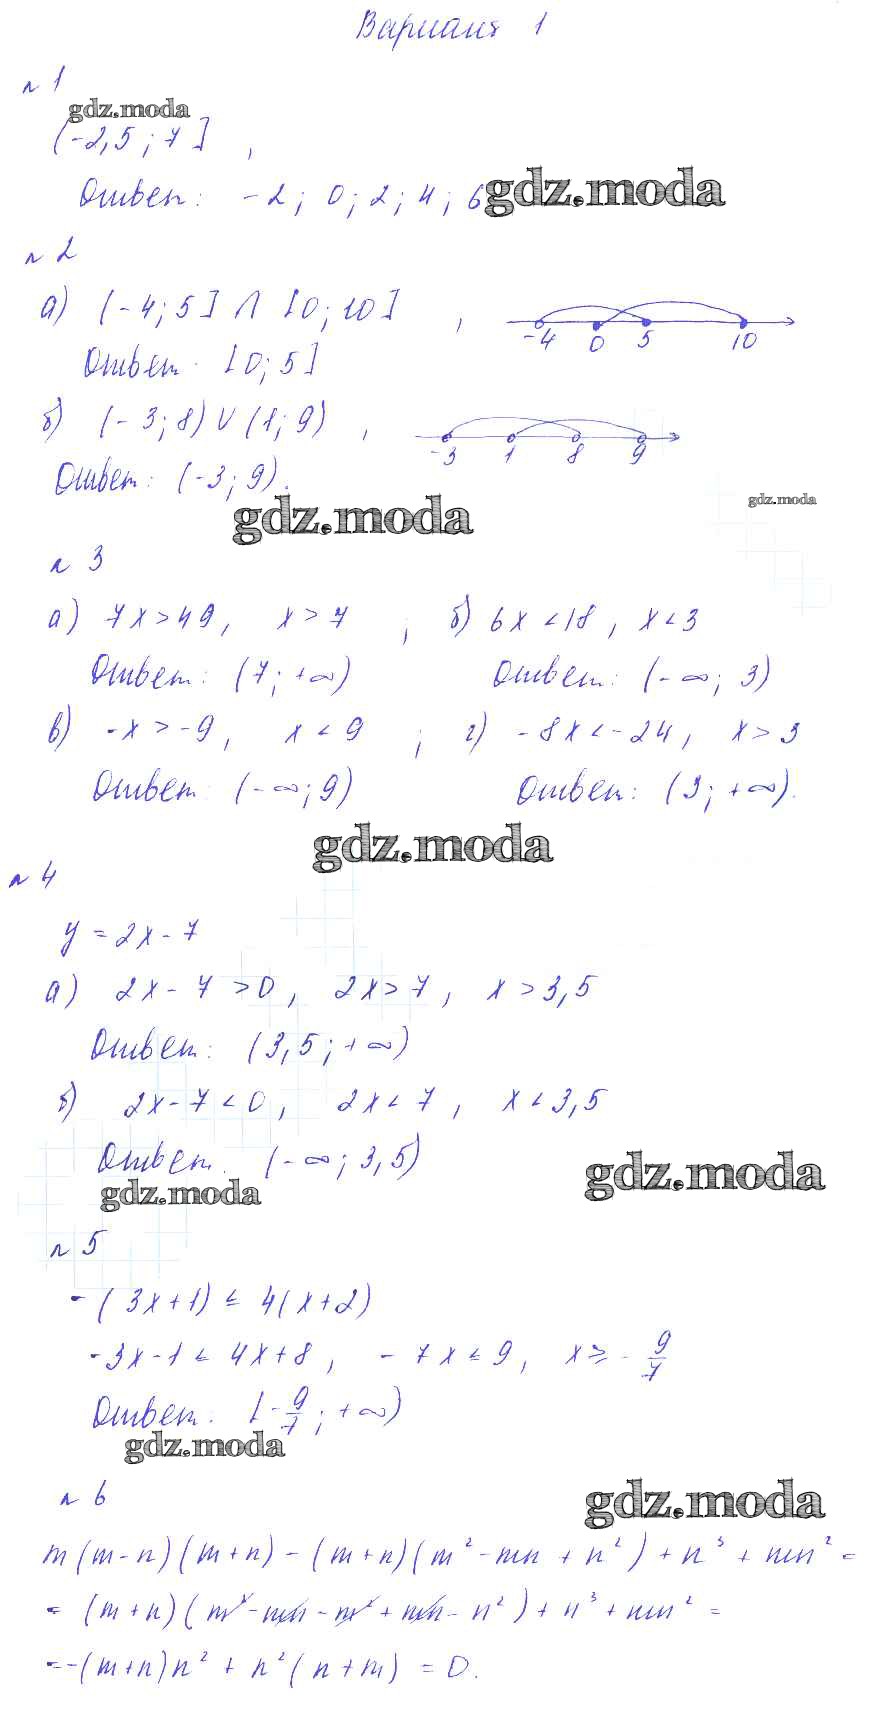 Вариант 1
№ 1
gdz.moda
(-2,5 ; 7] ,
Ответ: -2; 0; 2; 4; 6 gdz.moda
№ 2
а) (-4; 5] ∩ [0; 10] ,
-4 0 5 10
Ответ: [0; 5]
б) (-3; 8) ∪ (1; 9) ,
-3 1 8 9
Ответ: (-3; 9).
gdz.moda
gdz.moda
№ 3
а) 7x > 49, x > 7 ; б) 6x < 18, x < 3
Ответ: (7; +∞) Ответ: (-∞; 3)
в) -x > -9, x < 9 ; г) -8x < -24, x > 3
Ответ: (-∞; 9) Ответ: (3; +∞).
gdz.moda
№ 4
y = 2x - 7
а) 2x - 7 > 0, 2x > 7, x > 3,5
Ответ: (3,5; +∞)
б) 2x - 7 < 0, 2x < 7, x < 3,5
Ответ: (-∞; 3,5)
gdz.moda
gdz.moda
№ 5
-(3x+1) ≤ 4(x+2)
-3x-1 ≤ 4x+8, -7x ≤ 9, x ≥ -9/7
Ответ: [-9/7; +∞)
gdz.moda
№ 6
gdz.moda
m(m-n)(m+n) - (m+n)(m² - mn + n²) + n³ + mn² =
= (m+n)(m² - mn - m² + mn - n²) + n³ + mn² =
= -(m+n)n² + n²(n+m) = 0.